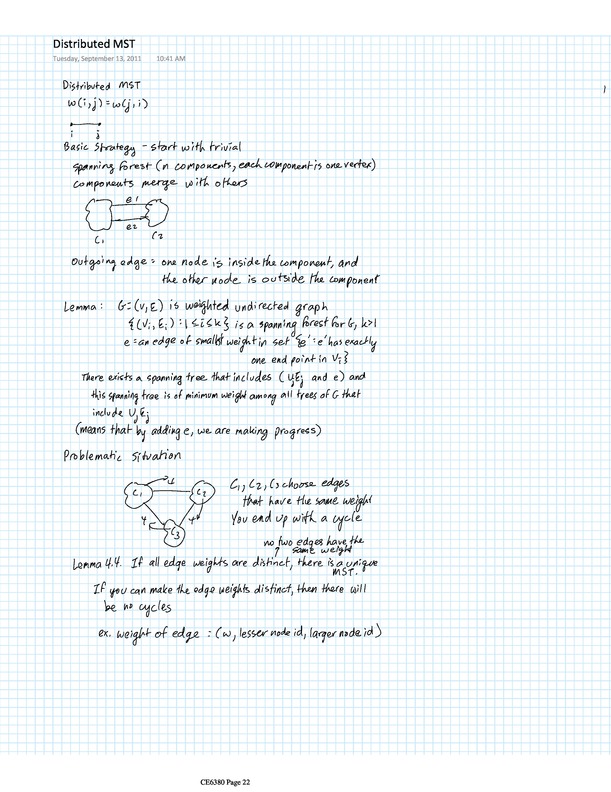 Distributed MST
Tuesday, September 13, 2011 10:41 AM
1
Distributed MST
w(i,j)=w(j,i)
i j
Basic Strategy - start with trivial
spanning forest (n components, each component is one vertex)
components merge with others
e1
e2
C1 C2
Outgoing edge = one node is inside the component, and
the other node is outside the component
Lemma: G=(V,E) is weighted undirected graph
{(Vi, Ei) : 1 ≤ i ≤ k} is a spanning forest for G, k>1
e = an edge of smallest weight in set {e' : e' has exactly
one end point in Vi}
There exists a spanning tree that includes (UjEj and e) and
this spanning tree is of minimum weight among all trees of G that
include UjEj
(means that by adding e, we are making progress)
Problematic Situation
4
C1 C2
4 4
C3
C1, C2, C3 choose edges
that have the same weight
You end up with a cycle
no two edges have the
same weight
Lemma 4.4. If all edge weights are distinct, there is a unique
MST.
If you can make the edge weights distinct, then there will
be no cycles
ex. weight of edge : (w, lesser node id, larger node id)
CE6380 Page 22